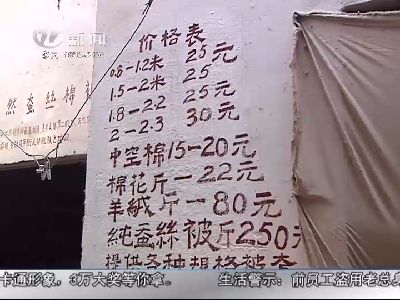 新闻
价格表
0.8-1.2米 25元
1.5-2米 25
1.8-2.2 25元
2-2.3 30元
中空棉15-20元
棉花斤-22元
羊絨斤-80元
純蚕絲被斤250元
提供各种規格被套
然蚕丝棉
卡通形象，3万大奖等你拿。
生活警示：前员工盗用老总身